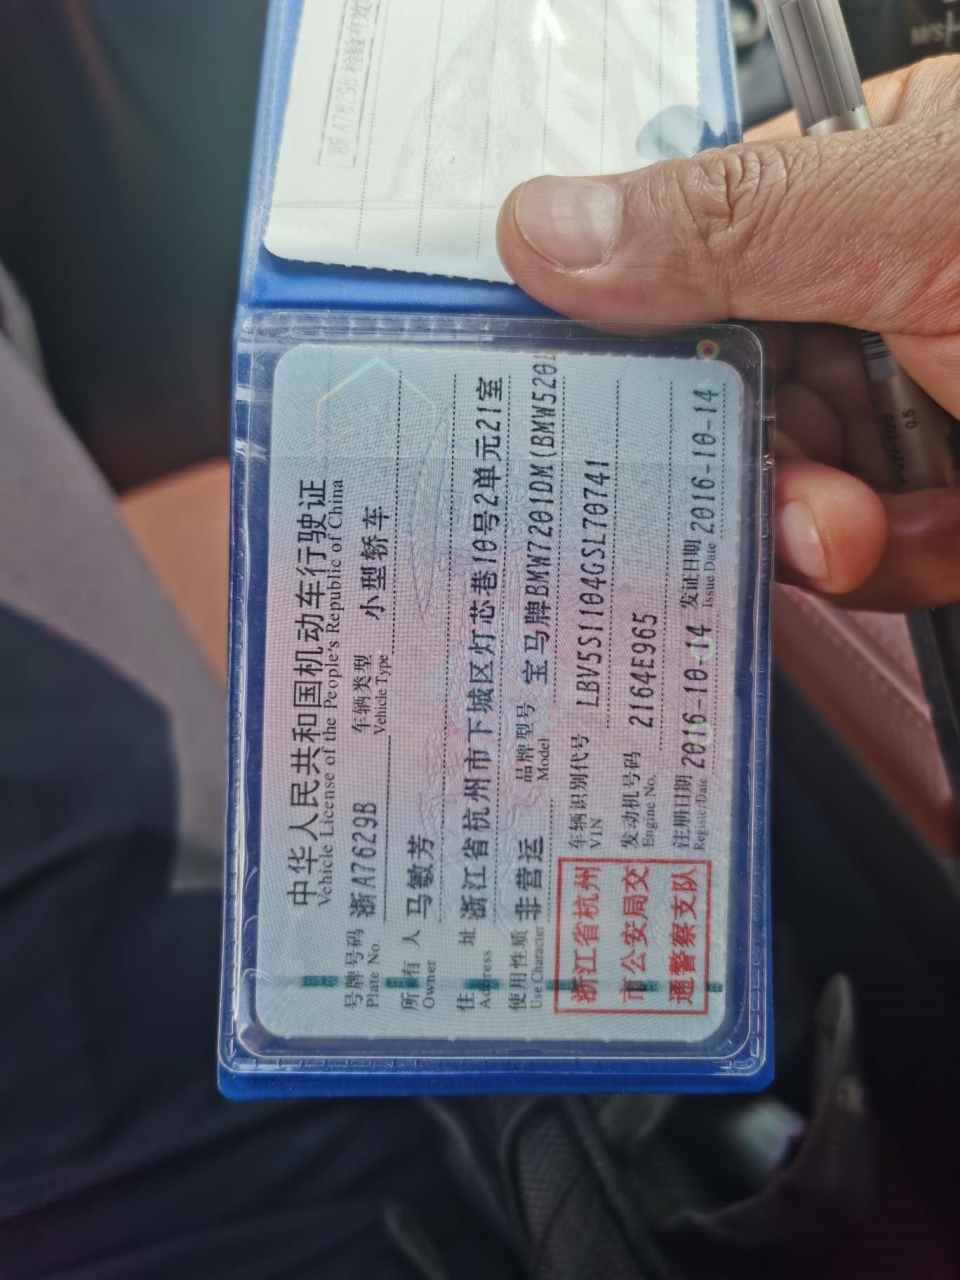 中华人民共和国机动车行驶证
Vehicle License of the People's Republic of China
号牌号码 浙A7629B 车辆类型 小型轿车
Plate No. Vehicle Type
所有人 马敏芳
Owner
住址 浙江省杭州市下城区灯芯巷10号2单元21室
Address
使用性质 非营运 品牌型号 宝马牌BMW7201DM(BMW520L
Use Character Model
浙江省杭州
市公安局交
通警察支队
车辆识别代号 LBV5S1104GSL70741
VIN
发动机号码 2164E965
Engine No.
注册日期 2016-10-14 发证日期 2016-10-14
Register Date Issue Date
浙A7629B
0.5